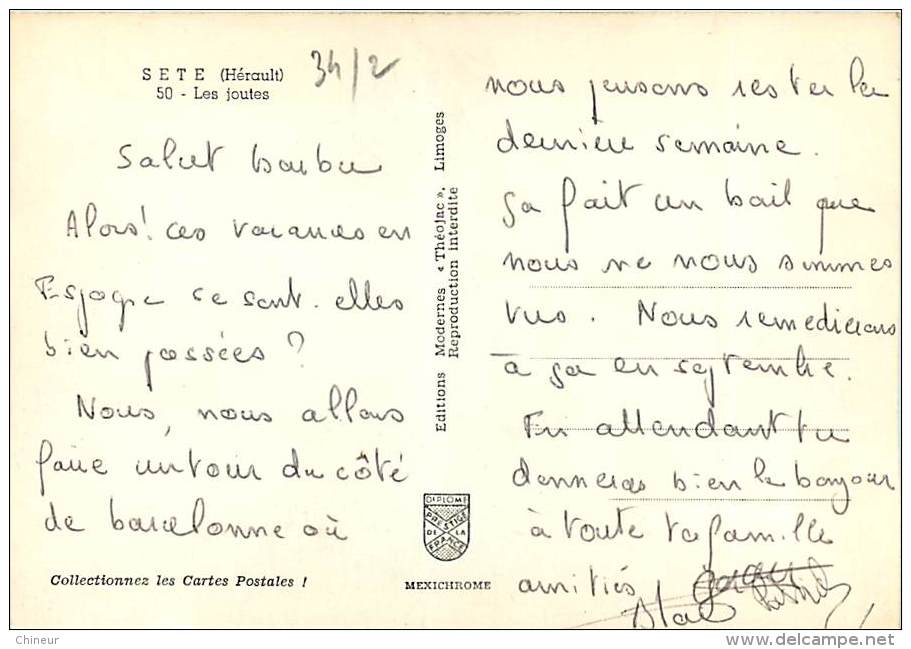 SETE (Hérault)
50 - Les joutes
34/2
Salut
Alors! ces vacances en
Espagne se sont-elles
bien passées ?
Nous, nous allons
faire un tour du côté
de barcelonne où
Collectionnez les Cartes Postales !
Editions Modernes « Théojac », Limoges
Reproduction interdite
DIPLOME
PRESTIGE
DE LA
FRANCE
MEXICHROME
nous pensons rester la
dernière semaine.
ça fait un bail que
nous ne nous sommes
vus. Nous remedierons
à ça en septembre.
En attendant tu
donneras bien le bonjour
à toute ta famille
amitiés
Chineur
www.delcampe.net